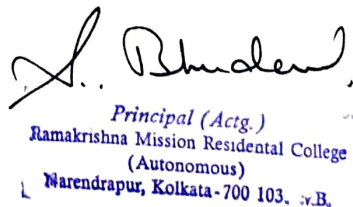 Principal (Actg.)
Ramakrishna Mission Residental College
(Autonomous)
Narendrapur, Kolkata-700 103. W.B.